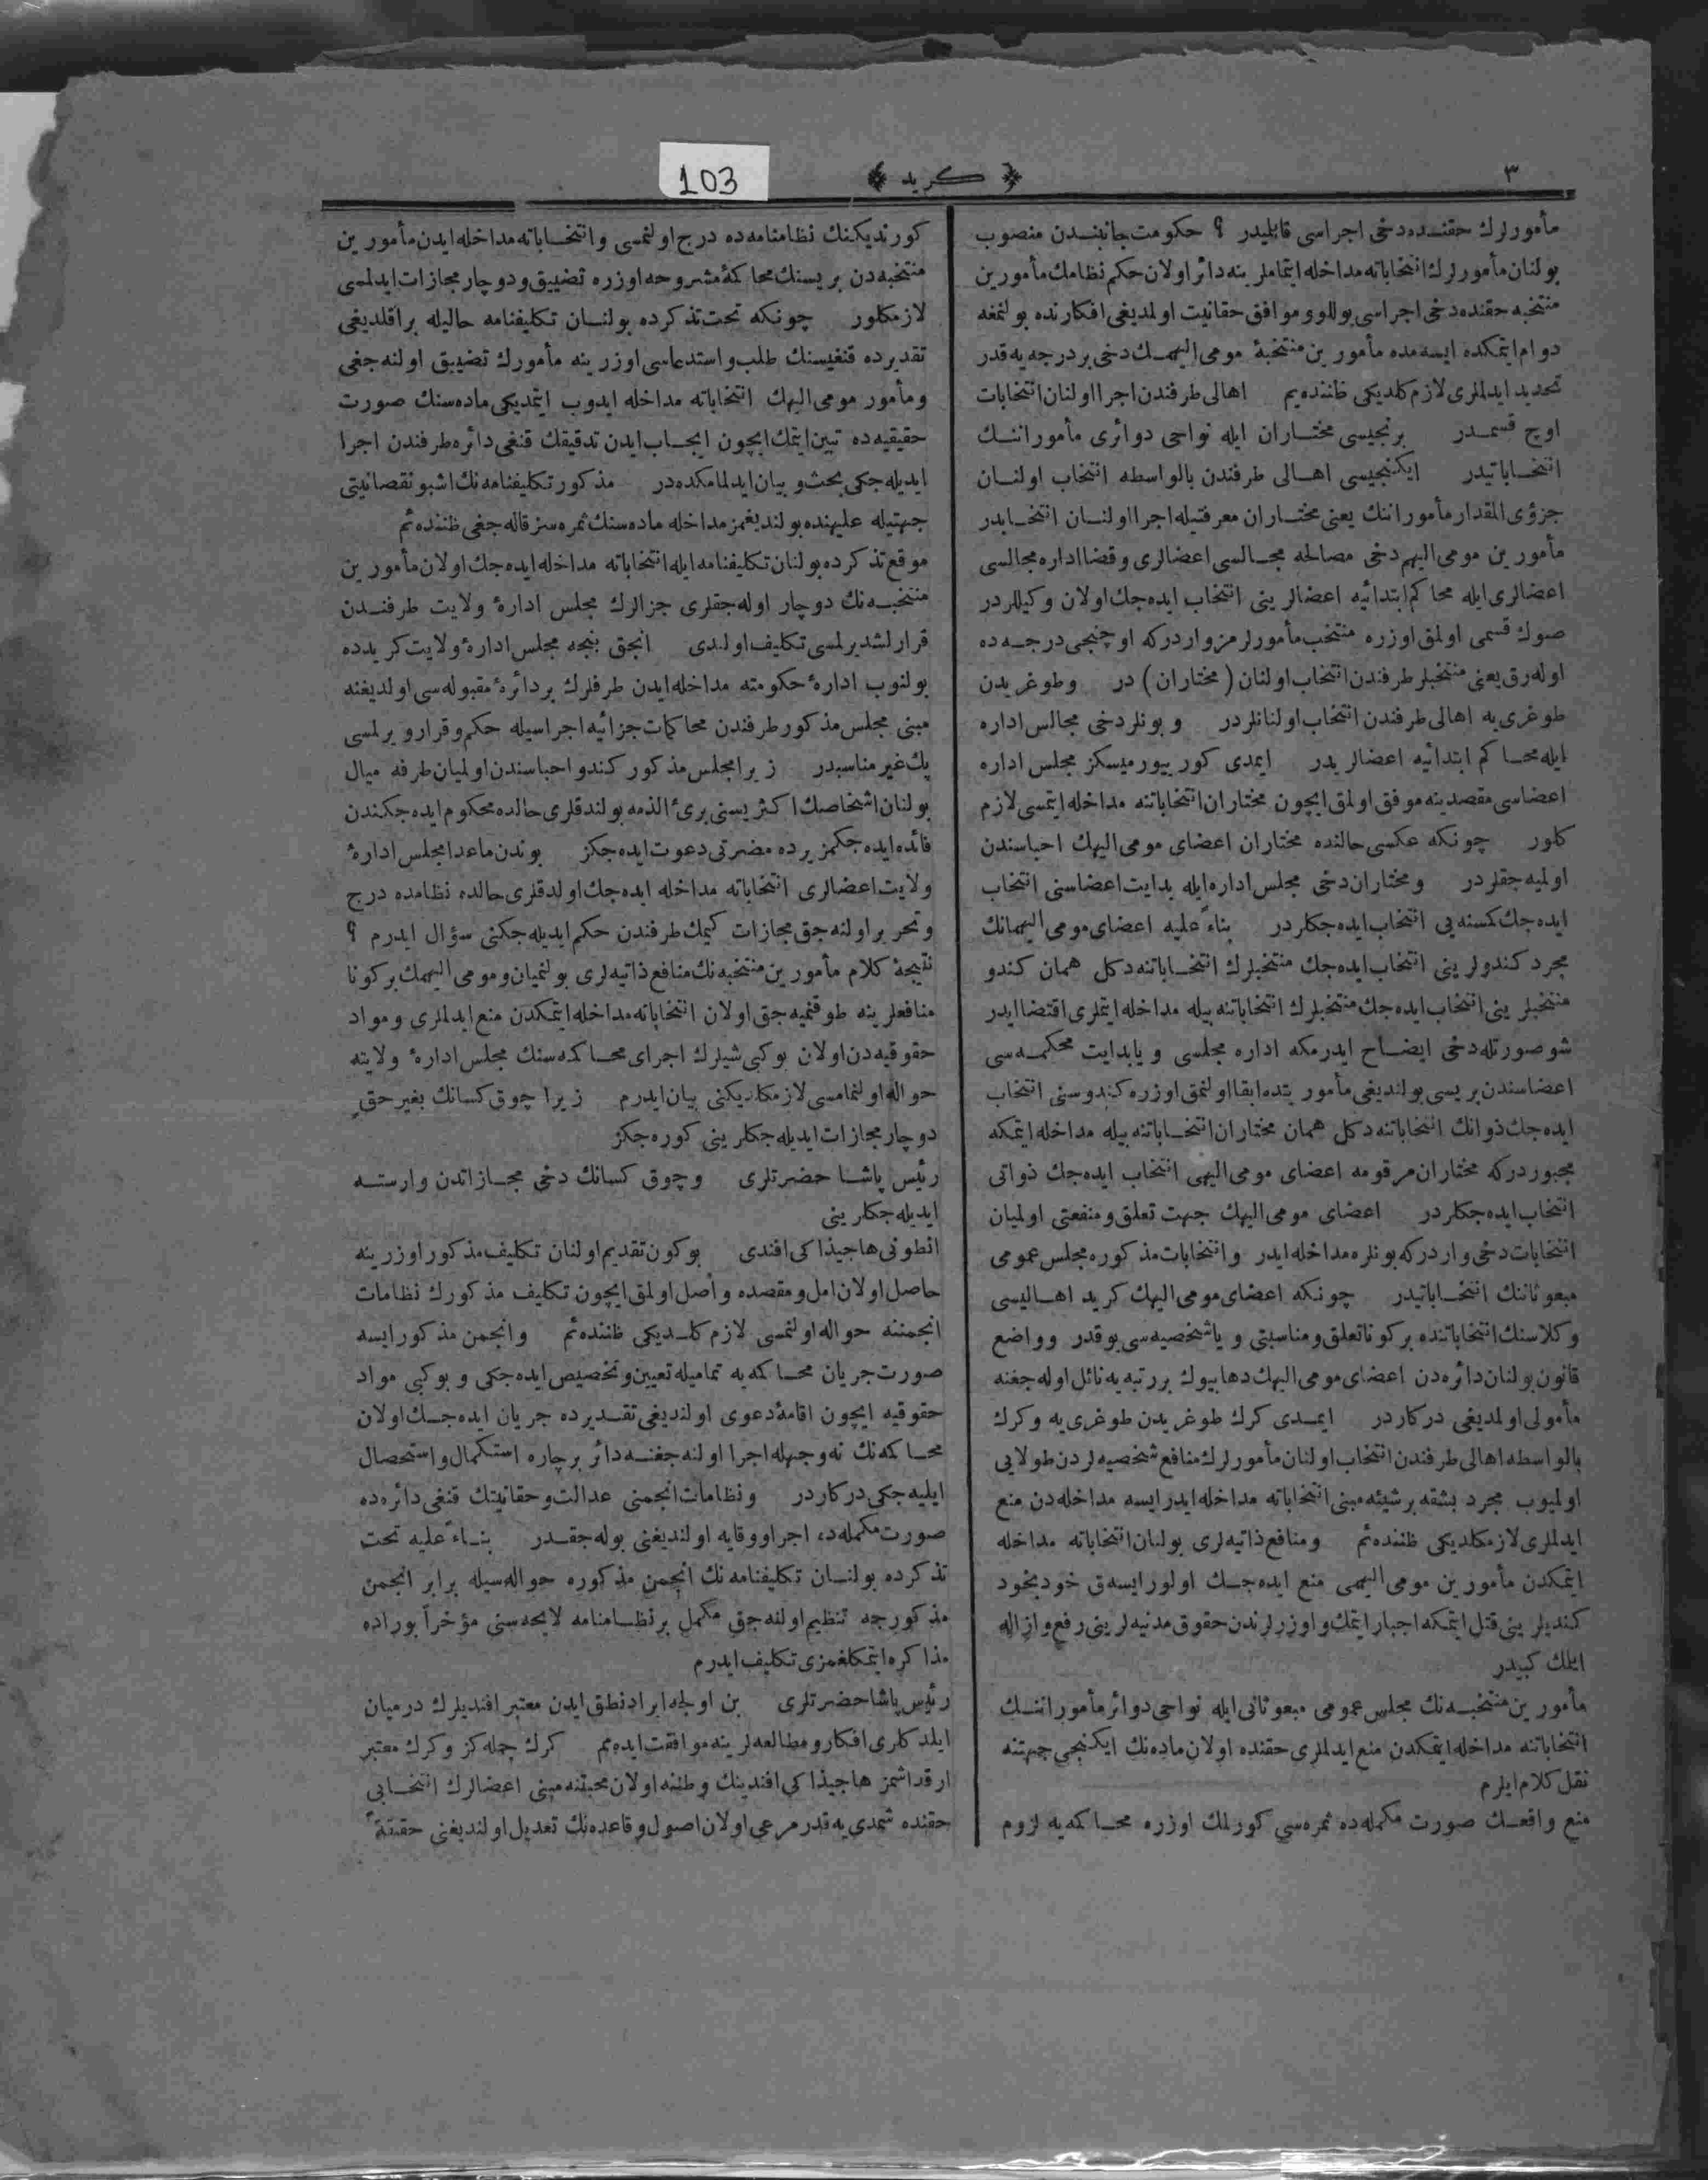 ٣
﴿ كريد ﴾
103
مأمورلرك حقنده دخی اجراسی قابليدر ؟ حكومت جانبندن منصوب
بولنان مأمورلرك انتخاباته مداخله ايتماملرينه دائر اولان حكم نظامك مأمورين
منتخبه حقنده دخی اجراسی يوللو و موافق حقانيت اولديغی افكارنده بولنمغه
دوام ايتمكده ايسه مده مأمورين منتخبۀ مومی اليهمك دخی بر درجه يه قدر
تحديد ايدلملری لازم كلديكی ظننده يم اهالی طرفندن اجرا اولنان انتخابات
اوچ قسمدر برنجيسی مختاران ايله نواحی دوائری مأمورانك
انتخاباتيدر ايكنجيسی اهالی طرفندن بالواسطه انتخاب اولنان
جزؤی المقدار مأمورانك يعنی مختاران معرفتيله اجرا اولنان انتخابدر
مأمورين مومی اليهم دخی مصالحه مجالسی اعضالری و قضا اداره مجالسی
اعضالری ايله محاكم ابتدائيه اعضالرينی انتخاب ايده جك اولان وكيللردر
صوك قسمی اولمق اوزره منتخب مأمورلرمز واردركه اوچنجی درجه ده
اوله رق يعنی منتخبلر طرفندن انتخاب اولنان ( مختاران ) در و طوغريدن
طوغری يه اهالی طرفندن انتخاب اولنانلردر و بونلر دخی مجالس اداره
ايله محاكم ابتدائيه اعضالريدر ايمدی كوريیورميسكز مجلس اداره
اعضاسی مقصدينه موفق اولمق ايچون مختاران انتخاباتنه مداخله ايتمسی لازم
كلور چونكه عكسی حالنده مختاران اعضای مومی اليهك احباسندن
اولميه جقلردر و مختاران دخی مجلس اداره ايله بدايت اعضاسنی انتخاب
ايده جك كمسنه يی انتخاب ايده جكلردر بناءً عليه اعضای مومی اليهمانك
مجرد كندولرينی انتخاب ايده جك منتخبلرك انتخاباتنه دكل همان كندو
منتخبلرينی انتخاب ايده جك منتخبلرك انتخاباتنه بيله مداخله ايتملری اقتضا ايدر
شو صورتله دخی ايضاح ايدرمكه اداره مجلسی و يا بدايت محكمه سی
اعضاسندن بريسی بولنديغی مأموريتده ابقا اولنمق اوزره كندوسنی انتخاب
ايده جك ذواتك انتخاباتنه دكل همان مختاران انتخاباتنه بيله مداخله ايتمكه
مجبوردركه مختاران مرقومه اعضای مومی اليهی انتخاب ايده جك ذواتی
انتخاب ايده جكلردر اعضای مومی اليهك جهت تعلق و منفعتی اولميان
انتخابات دخی واردركه بونلره مداخله ايدر و انتخابات مذكوره مجلس عمومی
مبعوثاننك انتخاباتيدر چونكه اعضای مومی اليهك كريد اهاليسی
وكلاسنك انتخاباتنده بر كونا تعلق و مناسبتی و يا شخصيه سی يوقدر و واضع
قانون بولنان دائره دن اعضای مومی اليهك دها بيوك بر رتبه يه نائل اوله جغنه
مأمولی اولمديغی دركاردر ايمدی كرك طوغريدن طوغری يه و كرك
بالواسطه اهالی طرفندن انتخاب اولنان مأمورلرك منافع شخصيه لردن طولايی
اولميوب مجرد بشقه بر شيئه مبنی انتخاباته مداخله ايدر ايسه مداخله دن منع
ايدلملری لازمكلديكی ظننده ئم و منافع ذاتيه لری بولنان انتخاباته مداخله
ايتمكدن مأمورين مومی اليهمی منع ايده جك اولور ايسه ق خودبخود
كنديلرينی قتل ايتمكه اجبار ايتمك و اوزرلرندن حقوق مدنيه لرينی رفع و ازاله
ايلك كبيدر
مأمورين منتخبه نك مجلس عمومی مبعوثانی ايله نواحی دوائر مأمورانك
انتخاباتنه مداخله ايتمكدن منع ايدلملری حقنده اولان ماده نك ايكنجی جهتنه
نقل كلام ايلرم
منع واقعك صورت مكمله ده ثمره سی كورلمك اوزره محاكمه يه لزوم
كورنديكنك نظامنامه ده درج اولنمسی و انتخاباته مداخله ايدن مأمورين
منتخبه دن بريسنك محاكمۀ مشروحه اوزره تضييق و دوچار مجازات ايدلمسی
لازمكلور چونكه تحت تذكرده بولنان تكليفنامه حاليله براقلديغی
تقديرده قنغيسنك طلب و استدعاسی اوزرينه مأمورك تضييق اولنه جغی
و مأمور مومی اليهك انتخاباته مداخله ايدوب ايتمديكی ماده سنك صورت
حقيقيه ده تبين ايتمك ايچون ايجاب ايدن تدقيقك قنغی دائره طرفندن اجرا
ايديله جكی بحث و بيان ايدلمامكده در مذكور تكليفنامه نك اشبو نقصانيتی
جهتيله عليهنده بولنديغمز مداخله ماده سنك ثمره سز قاله جغی ظننده ئم
موقع تذكرده بولنان تكليفنامه ايله انتخاباته مداخله ايده جك اولان مأمورين
منتخبه نك دوچار اوله جقلری جزالرك مجلس ادارۀ ولايت طرفندن
قرارلشديرلمسی تكليف اولندی انجق بنجه مجلس ادارۀ ولايت كريدده
بولنوب ادارۀ حكومته مداخله ايدن طرفلرك بر دائرۀ مقبوله سی اولديغنه
مبنی مجلس مذكور طرفندن محاكمات جزائيه اجراسيله حكم و قرار ويرلمسی
پك غير مناسبدر زيرا مجلس مذكور كندو احباسندن اولميان طرفه ميال
بولنان اشخاصك اكثريسنی برئ الذمه بولندقلری حالده محكوم ايده جكندن
فائده ايده جكمز يرده مضرتی دعوت ايده جكز بوندن ماعدا مجلس ادارۀ
ولايت اعضالری انتخاباته مداخله ايده جك اولدقلری حالده نظامده درج
و تحرير اولنه جق مجازات كيمك طرفندن حكم ايديله جكنی سؤال ايدرم ؟
نتيجۀ كلام مأمورين منتخبه نك منافع ذاتيه لری بولنميان و مومی اليهمك بر كونا
منافعلرينه طوقنميه جق اولان انتخاباته مداخله ايتمكدن منع ايدلملری و مواد
حقوقيه دن اولان بوكبی شيلرك اجرای محاكمه سنك مجلس ادارۀ ولايته
حواله اولنمامسی لازمكلديكنی بيان ايدرم زيرا چوق كسانك بغير حقٍ
دوچار مجازات ايديله جكلرينی كوره جكز
رئيس پاشا حضرتلری و چوق كسانك دخی مجازاتدن وارسته
ايديله جكلرينی
انطونی هاجيذاكی افندی بوكون تقديم اولنان تكليف مذكور اوزرينه
حاصل اولان امل و مقصده واصل اولمق ايچون تكليف مذكورك نظامات
انجمننه حواله اولنمسی لازم كلديكی ظننده ئم و انجمن مذكور ايسه
صورت جريان محاكمه يه تماميله تعيين و تخصيص ايده جكی و بوكبی مواد
حقوقيه ايچون اقامۀ دعوی اولنديغی تقديرده جريان ايده جك اولان
محاكمه نك نه وجهله اجرا اولنه جغنه دائر بر چاره استكمال و استحصال
ايليه جكی دركاردر و نظامات انجمنی عدالت و حقانيتك قنغی دائره ده
صورت مكمله ده اجرا و وقايه اولنديغنی بوله جقدر بناءً عليه تحت
تذكرده بولنان تكليفنامه نك انجمن مذكوره حواله سيله برابر انجمن
مذكورجه تنظيم اولنه جق مكمل بر نظامنامه لايحه سنی مؤخراً بوراده
مذاكره ايتمكلغمزی تكليف ايدرم
رئيس پاشا حضرتلری بن اولجه ايراد نطق ايدن معتبر افنديلرك درميان
ايلدكلری افكار و مطالعه لرينه موافقت ايده مم كرك جمله كز و كرك معتبر
ارقداشمز هاجيذاكی افندينك وطننه اولان محبتنه مبنی اعضالرك انتخابی
حقنده شمدی يه قدر مرعی اولان اصول و قاعده نك تعديل اولنديغنی حقيقةً